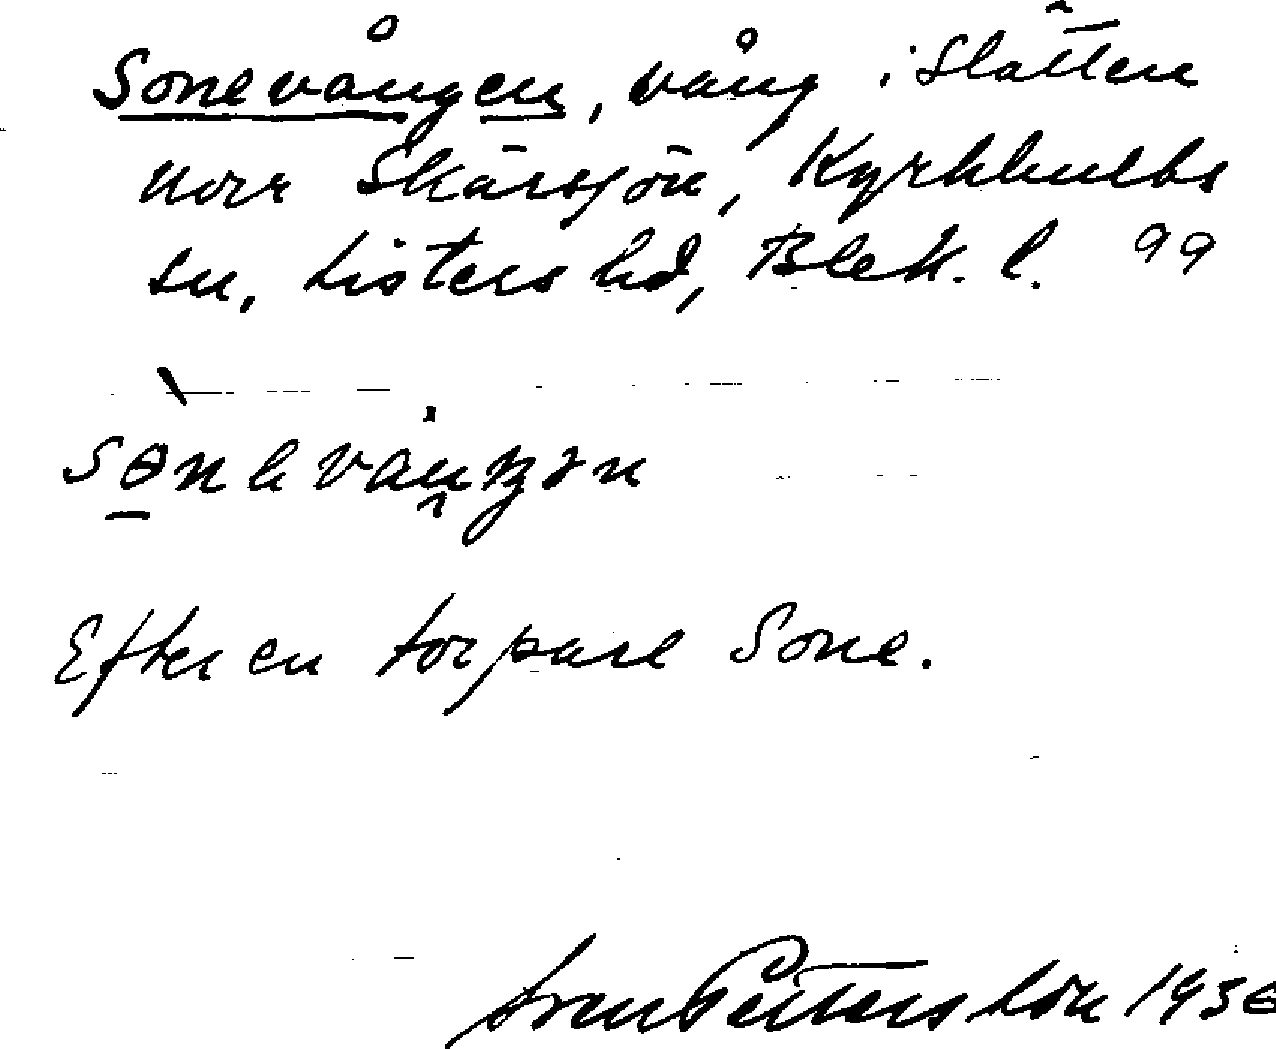 Sonevången, vång i Slätten
norr Skärsjön, Kyrkhults
sn, Listers hd, Blek. l. 99
Efter en torpare Sone.
1936